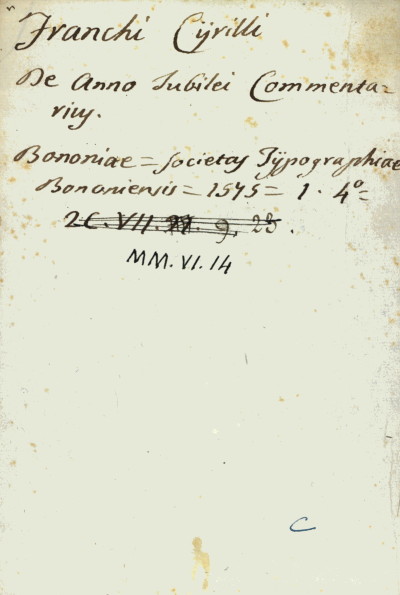 Franchi Cÿrilli
De Anno Iubilei Commenta=
rius.
Bononiae = Societas Tÿpographiae
Bononiensis = 1575 = 1. 4º =
2C. VII. 9. 23.
MM. VI. 14
C